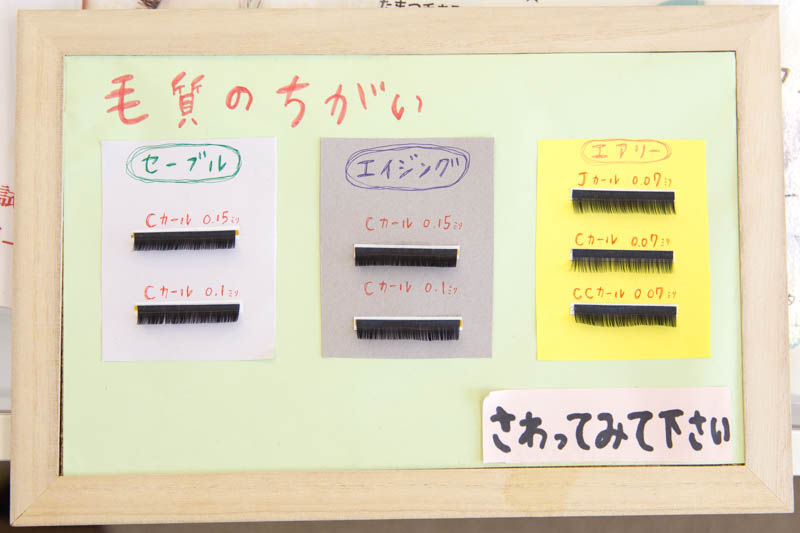 毛質のちがい
セーブル
Cカール 0.15ミリ
Cカール 0.1ミリ
エイジング
Cカール 0.15ミリ
Cカール 0.1ミリ
エアリー
Jカール 0.07ミリ
Cカール 0.07ミリ
CCカール 0.07ミリ
さわってみて下さい